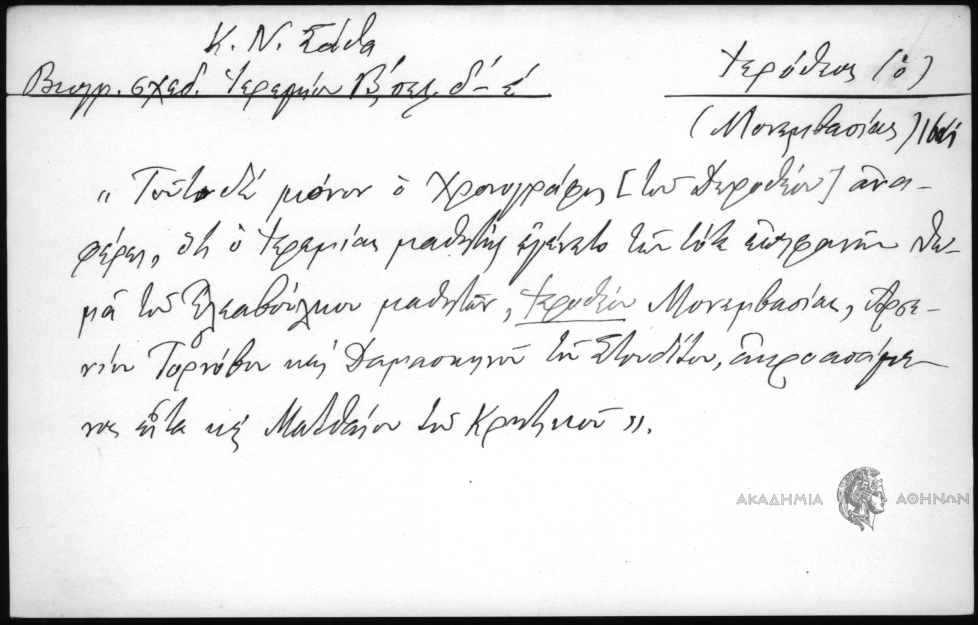 Κ. Ν. Σάθα
Βιογρ. σχεδ. Ἱερεμίου Β΄, σελ. δ΄- έ
Ἱερόθεος (ὁ)
(Μονεμβασίας)
"Τοῦτο δὲ μόνον ὁ Χρονογράφος [τοῦ Δωροθέου] ἀνα-
φέρει, ὅτι ὁ Ἱερεμίας μαθητὴς ἐγένετο τῶν τότε ἐπιφανῶν
τοῦ Ἐλεαβούλκου μαθητῶν, Ἱεροθέου Μονεμβασίας, Ἀρσε-
νίου Τορνόβου καὶ Δαμασκηνοῦ τοῦ Στουδίτου, ἀκροασάμε-
νος εἶτα καὶ Ματθαίου τοῦ Κρητικοῦ".
ΑΚΑΔΗΜΙΑ ΑΘΗΝΩΝ